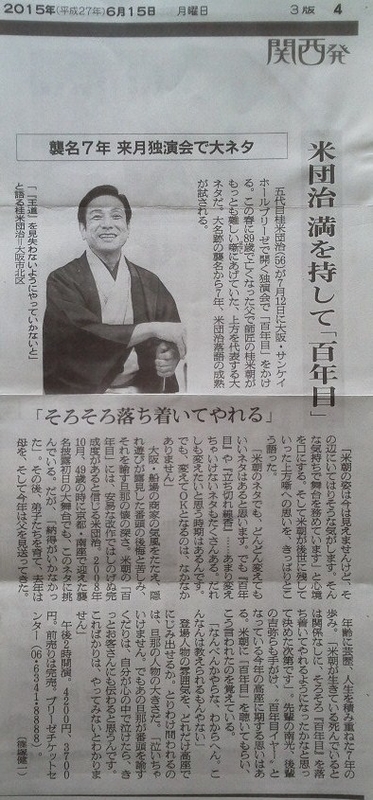 2015年(平成27年)6月15日 月曜日 3版 4
関西発
襲名7年 来月独演会で大ネタ
米団治 満を持して「百年目」
五代目桂米団治(56)が7月12日に大阪・サンケイ
ホールブリーゼで開く独演会で「百年目」をかけ
る。この春に89歳で亡くなった父で師匠の桂米朝が
もっとも難しい噺にあげていた、上方を代表する大
ネタだ。大名跡の襲名から7年、米団治落語の成熟
が試される。
「『王道』を見失わないようにやっていかないと」
と語る桂米団治=大阪市北区
「そろそろ落ち着いてやれる」
「米朝の姿は今は見えませんけど、そ
の辺にいてはりそうな気がします。そん
な気持ちで舞台を務めています」と心境
を口にする。そして米朝が後世に残して
いった上方噺への思いを、きっぱりとこ
う語った。
「米朝のネタでも、どんどん変えても
いいネタはあると思います。でも『百年
目』や『立ち切れ線香』……あまり変え
ちゃいけないネタもたくさんある。どれ
しも変えたいと思う時期はあるんです。
でも、変えてOKとなるのは、なかなか
ありません」
大阪・船場の商家の気風をたたえ、隠
れ遊びが露見した番頭の後悔と苦しみ、
それを諭す旦那の懐の深さ。米朝の「百
年目」には、安易な改作ではしのげぬ完
成度があると信じる米団治。2008年
10月、49歳の時に京都・南座で迎えた襲
名披露初日の大舞台でも、このネタに挑
んでいる。だが、「納得がいかなかっ
た」。その後、弟子たちを育て、去年は
母を、そして今年は父を見送ってきた。
年齢に芸歴、人生を積み重ねた7年の
歩み。「米朝が生きている死んでいると
は関係なしに、そろそろ『百年目』を落
ち着いてやれるようになったかなと思っ
て決めた次第です」。先輩の南光、後輩
の吉弥らも手がけ、「百年目イヤー」と
なっている今年の高座に期する思いはあ
る。米朝に「百年目」を聴いてもらい、
こう言われたのを覚えている。
「なんべんかやらな、わからへん。こ
んなんは教えられるもんやない」
登場人物の雰囲気を、どれだけ高座で
にじみ出せるか。とりわけ問われるの
は、旦那の人物の大きさだ。「泣いちゃ
いけません。でもあの旦那が番頭を諭す
くだりは、自分が心の中で泣けたら、き
っとお客さんにも伝わると思うんです。
こればかりは、やってみないとわかりま
せん」
午後2時開演。4200円、3700
円。前売りは完売。ブリーゼチケットセ
ンター(06・6341・8888)。
(篠塚健一)